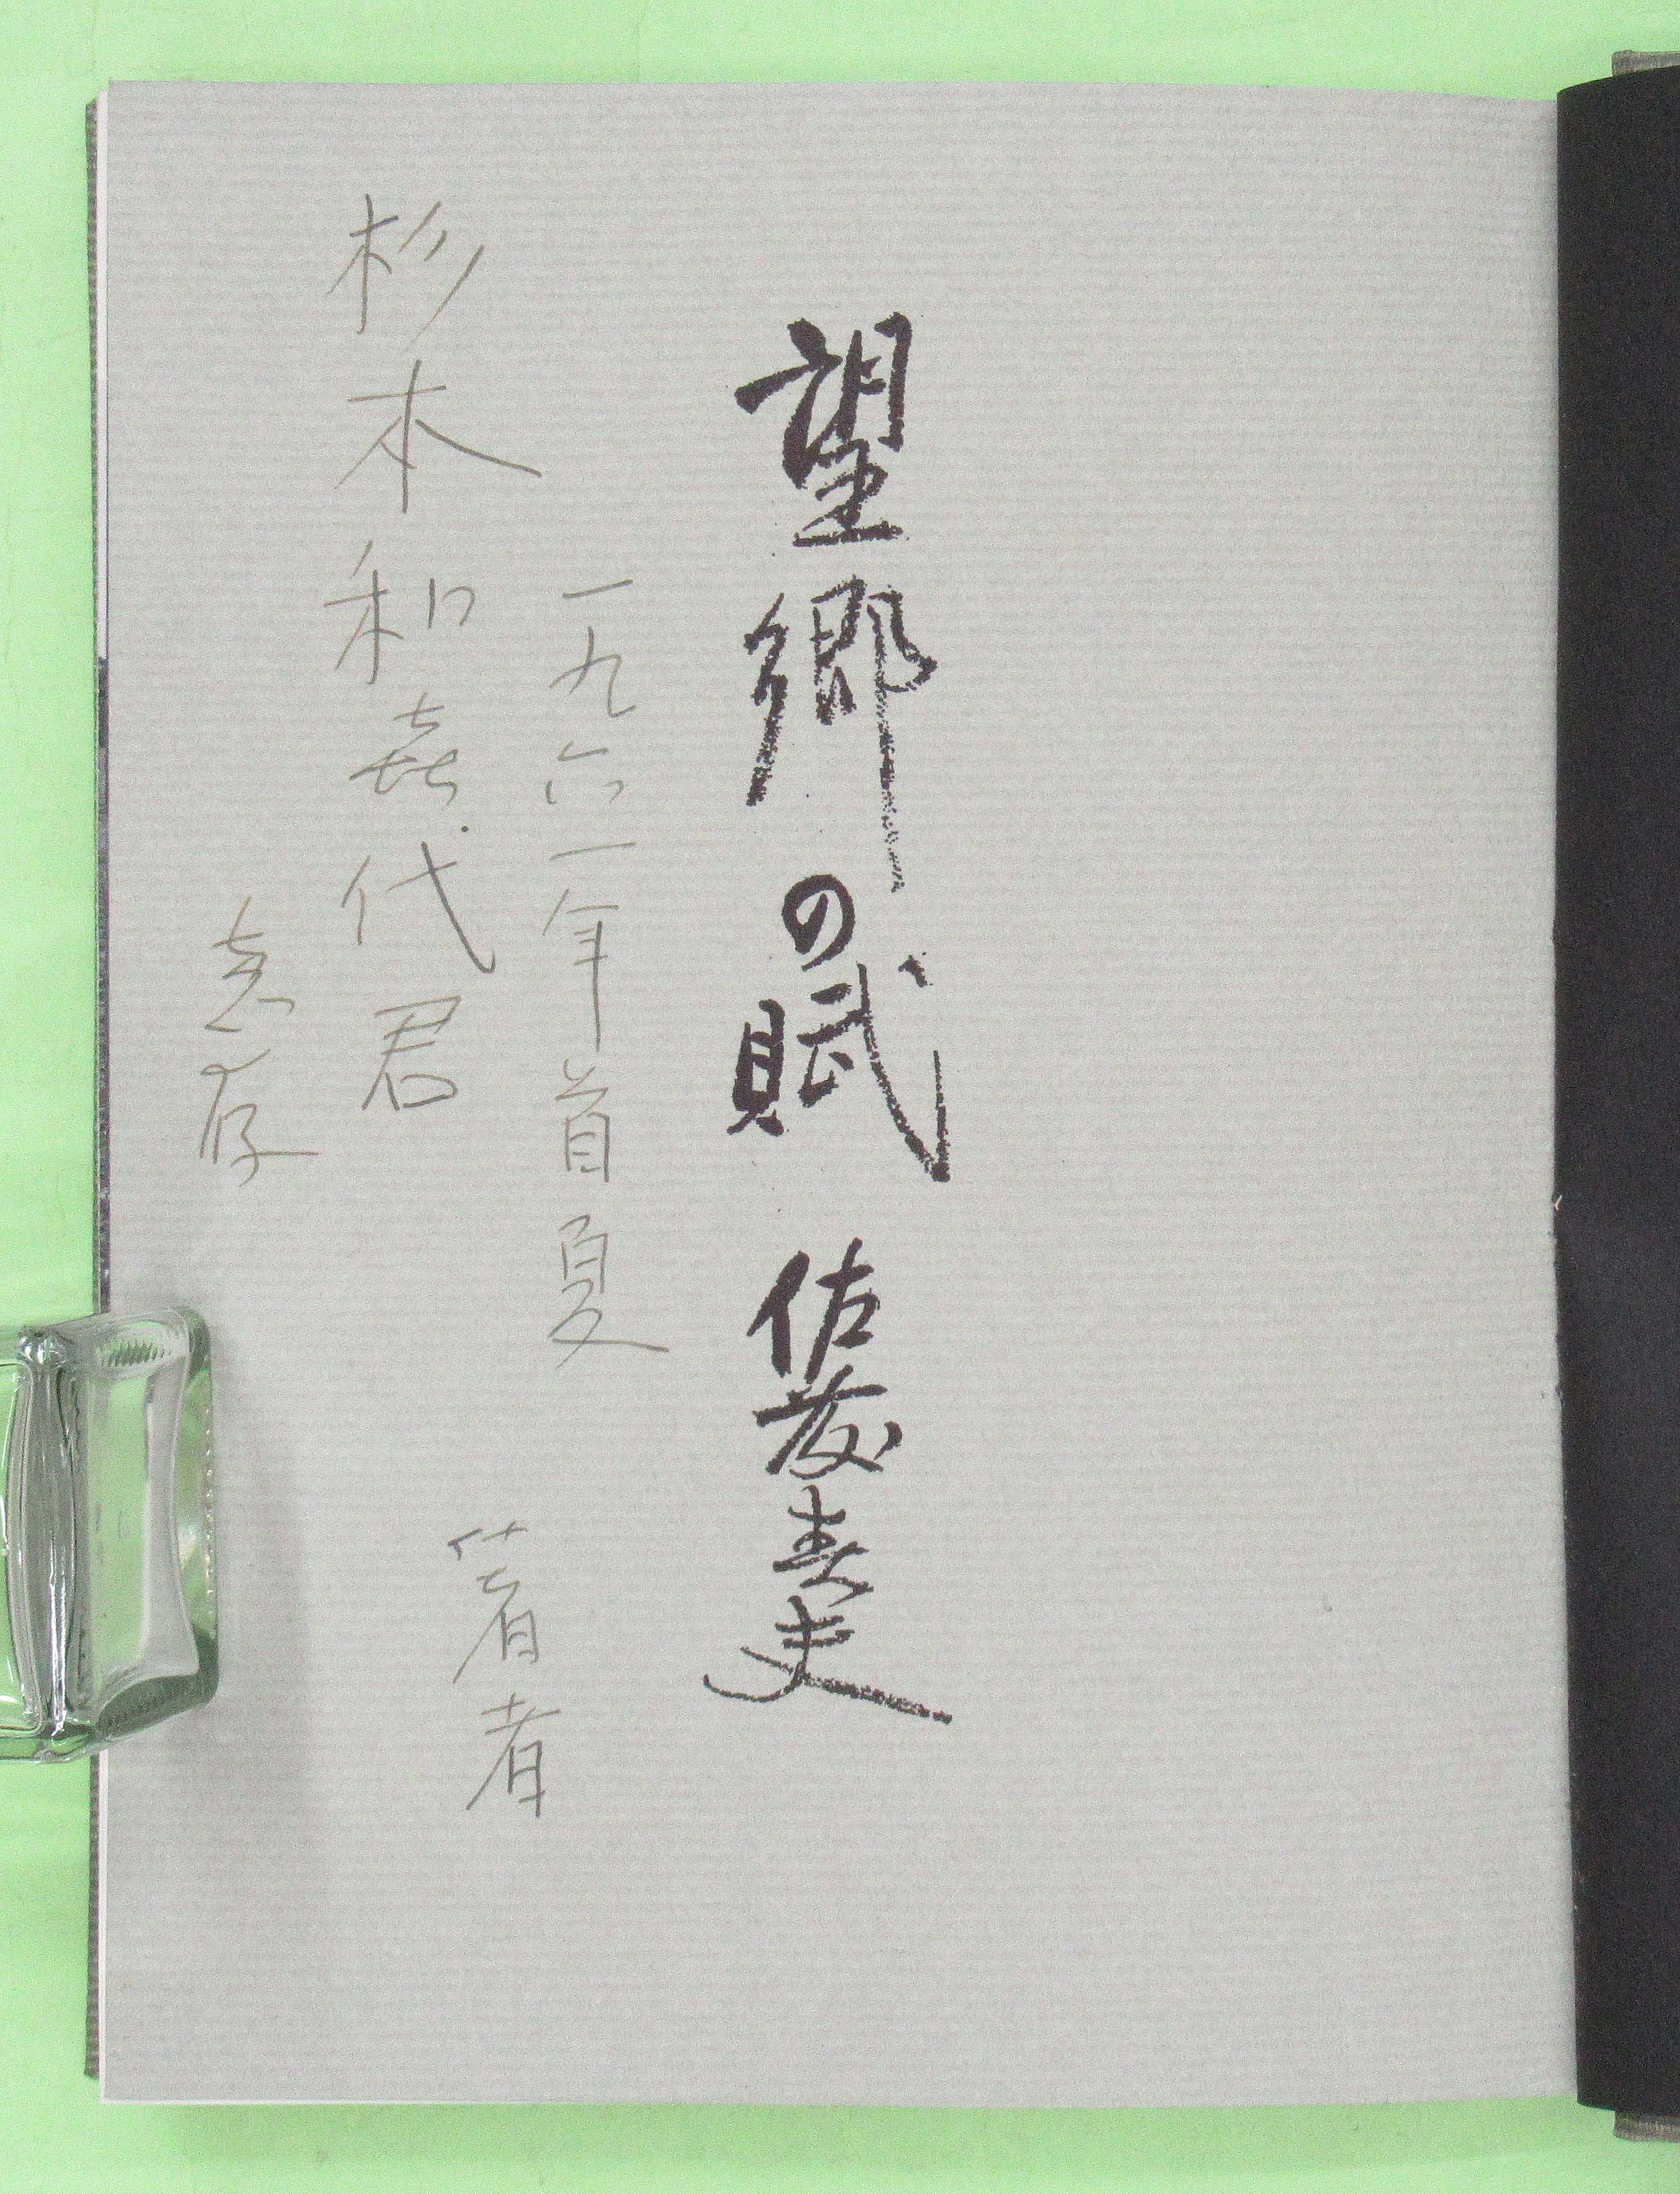 望郷の賦 佐藤春夫
一九六一年首夏
著者
杉本和㐂代君
恵存